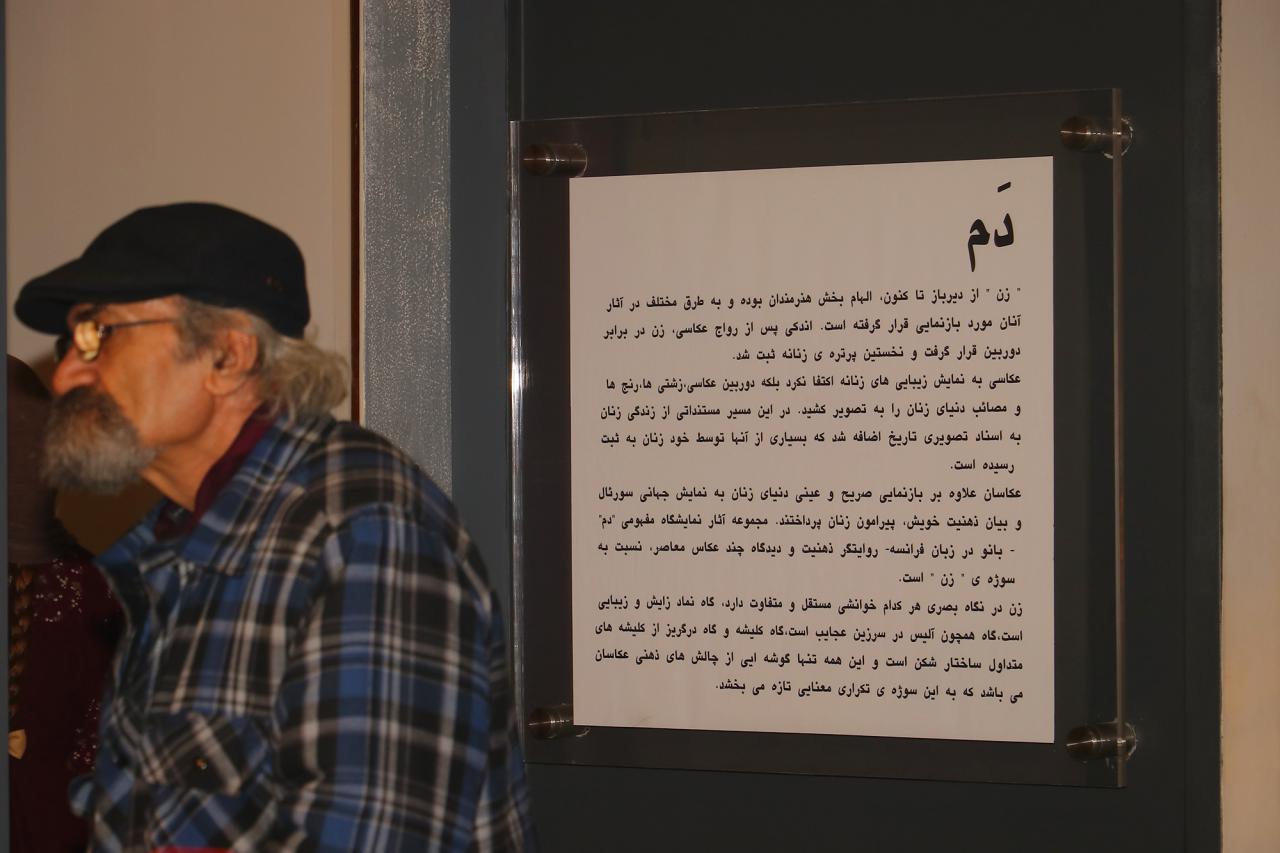 دَم
" زن " از دیرباز تا کنون، الهام بخش هنرمندان بوده و به طرق مختلف در آثار
آنان مورد بازنمایی قرار گرفته است. اندکی پس از رواج عکاسی، زن در برابر
دوربین قرار گرفت و نخستین پرتره ی زنانه ثبت شد.
عکاسی به نمایش زیبایی های زنانه اکتفا نکرد بلکه دوربین عکاسی،زشتی ها،رنج ها
و مصائب دنیای زنان را به تصویر کشید. در این مسیر مستنداتی از زندگی زنان
به اسناد تصویری تاریخ اضافه شد که بسیاری از آنها توسط خود زنان به ثبت
رسیده است.
عکاسان علاوه بر بازنمایی صریح و عینی دنیای زنان به نمایش جهانی سورئال
و بیان ذهنیت خویش، پیرامون زنان پرداختند. مجموعه آثار نمایشگاه مفهومی "دم"
- بانو در زبان فرانسه- روایتگر ذهنیت و دیدگاه چند عکاس معاصر، نسبت به
سوژه ی " زن " است.
زن در نگاه بصری هر کدام خوانشی مستقل و متفاوت دارد، گاه نماد زایش و زیبایی
است،گاه همچون آلیس در سرزین عجایب است،گاه کلیشه و گاه درگریز از کلیشه های
متداول ساختار شکن است و این همه تنها گوشه ایی از چالش های ذهنی عکاسان
می باشد که به این سوژه ی تکراری معنایی تازه می بخشد.